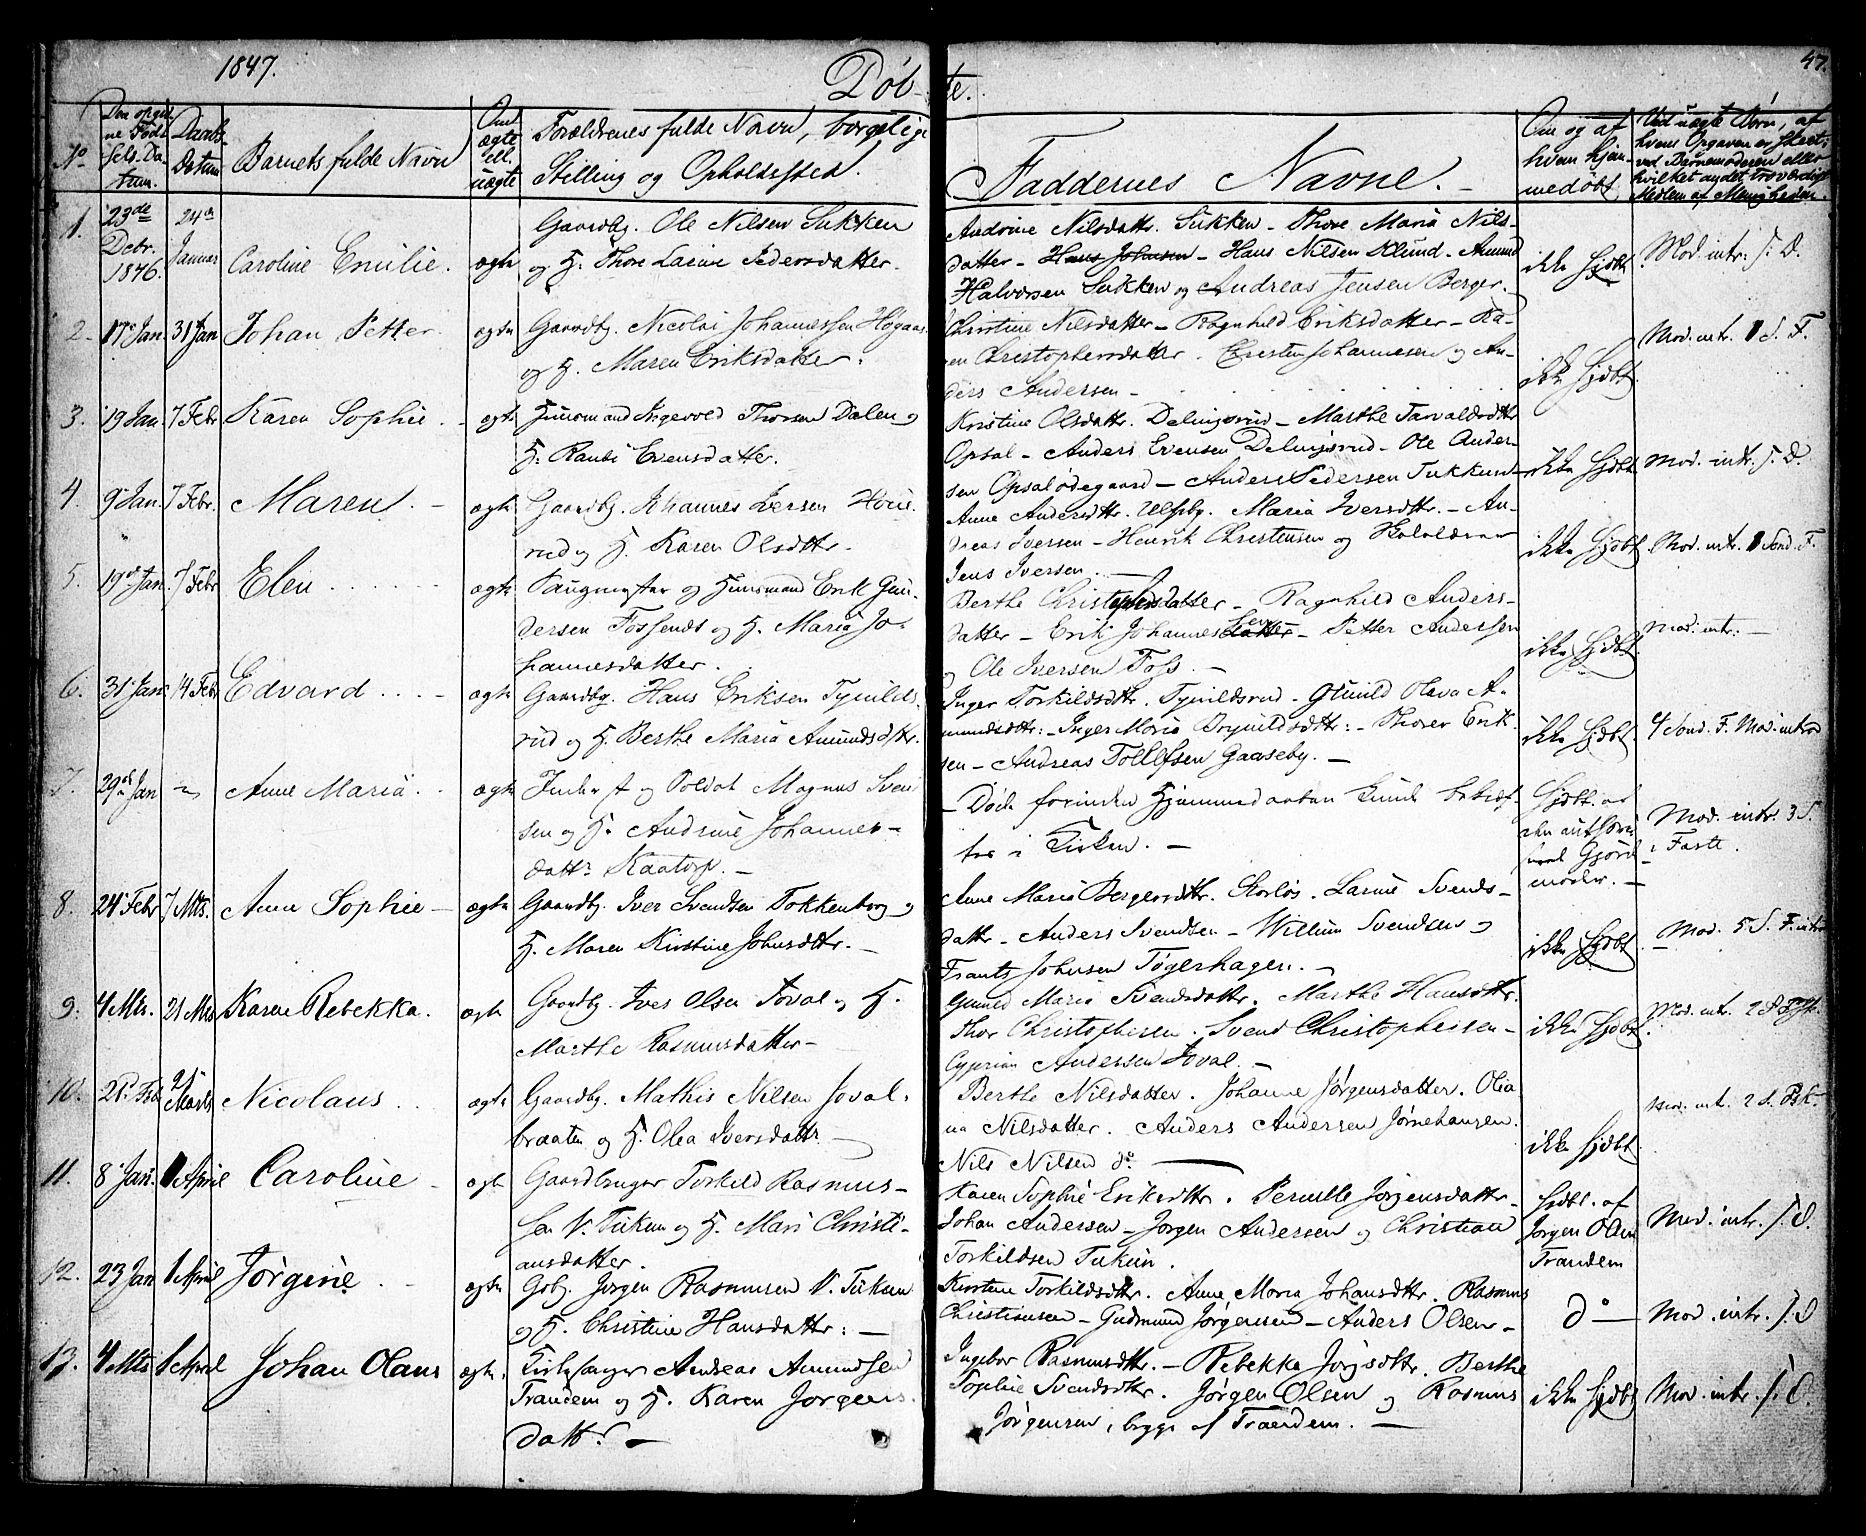 1847.
Døb-
te.
47.
No
Den opgiv-
ne Fød-
sels Da-
tum.
Daabs
Datum
Barnets fulde Navn
Om
ægte
ell.
uægte
Forældrenes fulde Navn, borgelige
Stilling og Opholdssted.
Faddernes Navne.
Om og af
hvem hjem-
medøbt
Ved uægte Børn, af
hvem Opgaven er skeet:
ved Barnemoderen eller
hvilket andet troværdigt
Medlem af Menigheden.
1.
23de
Debr.
1846.
24de
Januar
Caroline Emilie.
ægte
Gaardbr. Ole Nilsen Sukken
og H. Thore Laine Pedersdatter.
Andrine Nilsdattr. Sukken - Thore Maria Nils-
datter - Hans Johnsen - Hans Nilsen Klund - Amund
Halvorsen Sukken og Andreas Jensen Berger.
ikke hjdbt
Mod. intr. s. D.
2.
17 Jan
31 Jan
Johan Petter
ægte
Gaardbr. Nicolai Johannessen Høgaas
og H. Maren Eriksdatter.
Christine Nilsdatter - Ragnhild Eriksdatter - Ka-
ren Christophersdatter. Christen Johannesen og An-
ders Andersen -
ikke hjdbt
Mod. intr. 1 S. F.
3.
19 Jan.
7 Febr
Karen Sophie.
ægte
Huusmand Ingevold Thorsen Dalen og
H. Randi Evensdatter.
Kristine Olsdattr. Delingsrud - Marthe Tarvaldsdttr
Opsal - Anders Evensen Delingsrud - Ole Ander-
sen Opsalødegaard - Anders Pedersen Tukkun -
ikke hjdbt
Mod. intr. s. D.
4.
9 Jan.
7 Febr.
Maren. -
ægte
Gaardbg. Johannes Iversen Høie-
rud og H. Karen Olsdttr.
Anne Andersdttr. Ulfsby. Maria Iversdttr. - An-
dreas Iversen - Henrik Christensen og Skolelærer
Jens Iversen. -
ikke hjdbt
Mod. intr. 1 Sønd. F.
5.
19de Jan.
7 Febr
Elen
ægte
Saugmester og Huusmand Erik Gun-
dersen Fossends og H. Maria Jo-
hannesdatter.
Berthe Christophersdatter - Ragnhild Anders-
datter - Erik Johannessen - Petter Andersen
og Ole Iversen Foss. -
ikke hjdbt
Mod. intr. -
6.
31 Jan.
14 Febr
Edvard
ægte
Gaardbg. Hans Eriksen Tynilds-
rud og H. Berthe Maria Amundsdttr.
Inger Torkildsdttr. Tynildsrud - Gunild Olava A-
mundsdttr: - Inger Maria Brynildsdttr: - Thorer Erik-
sen - Andreas Tollefsen Gaaseby. -
ikke hjdbt
4 Sønd. F. Mod. introd
7.
29de Jan
Anne Maria.
ægte
Inderst og Soldat Magnus Svend-
sen og H. Andrine Johannes-
dattr Kaatorp. -
- Døde forinden Hjemmedaaben kunde bekræf-
tes i Kirken. -
Hjdbt. af
Gjord-
moder. -
Mod. intr. 3 S.
i Faste.
8.
24 Febr
7 Mts.
Anne Sophie -
ægte
Gaardbg. Iver Svendsen Tokkenborg og
H. Maren Kirstine Johnsdttr. -
Anne Maria Bergersdttr. Storløs. Larine Svends-
dattr - Anders Svendsen - Willum Svendsen og
Frantz Johnsen Tøgerhagen. -
ikke hjdbt
Mod. 5 S. F. intr
9.
4 Mts.
21 Mts
Karen Rebekka.
ægte
Gaardbg. Iver Olsen Joval og H.
Marthe Rasmusdatter -
Gunild Maria Svendsdatter. Marthe Hansdttr.
Thor Christophersen. Svend Christophersen -
Cyprian Andersen Joval. -
ikke hjdbt
Mod. intr. 2 S. Psk.
10.
21 Feb
21 Marts
Nicolaus
ægte
Gaardbg. Mathis Nilsen Joval-
braaten og H. Olea Iversdattr. -
Berthe Nilsdatter. Johanne Jørgensdatter. Olia
na Nilsdatter. Anders Andersen Jørnehaugen.
Nils Nilsen do. -
ikke hjdbt
Mod. intr. 2 S. Psk.
11.
8 Jan.
1 April
Caroline -
ægte
Gaardbruger Torkild Rasmus-
sen V. Tukun og H. Mari Christi-
ansdatter.
Karen Sophie Eriksdttr. Pernille Jørgensdatter -
Johan Andersen - Jørgen Andersen og Christian
Torkildsen Tukun.
hjdbt. af
Jørgen Olsen
Trandem
Mod. intr. s. D.
12.
23 Jan
1 April
Jørgine
ægte
Gbg. Jørgen Rasmusen V. Tukun
og H. Christine Hansdatter: -
Kirstene Torkildsdttr. Anne Maria Johansdttr. Rasmus
Christiansen - Gudmund Jørgensen - Anders Olsen -
do -
Mod. intr. s. D
13.
4 Mts
1 April
Johan Olaus
ægte.
Kirkesanger Andreas Amundsen
Trandem og H. Karen Jørgens-
datt. -
Ingebor Rasmusdttr. - Rebekka Jørgsdttr. Berthe
Sophie Svendsdttr. Jørgen Olsen og Rasmus
Jørgensen, begge af Trandem. -
ikke hjdbt
Mod. intr. s. D.